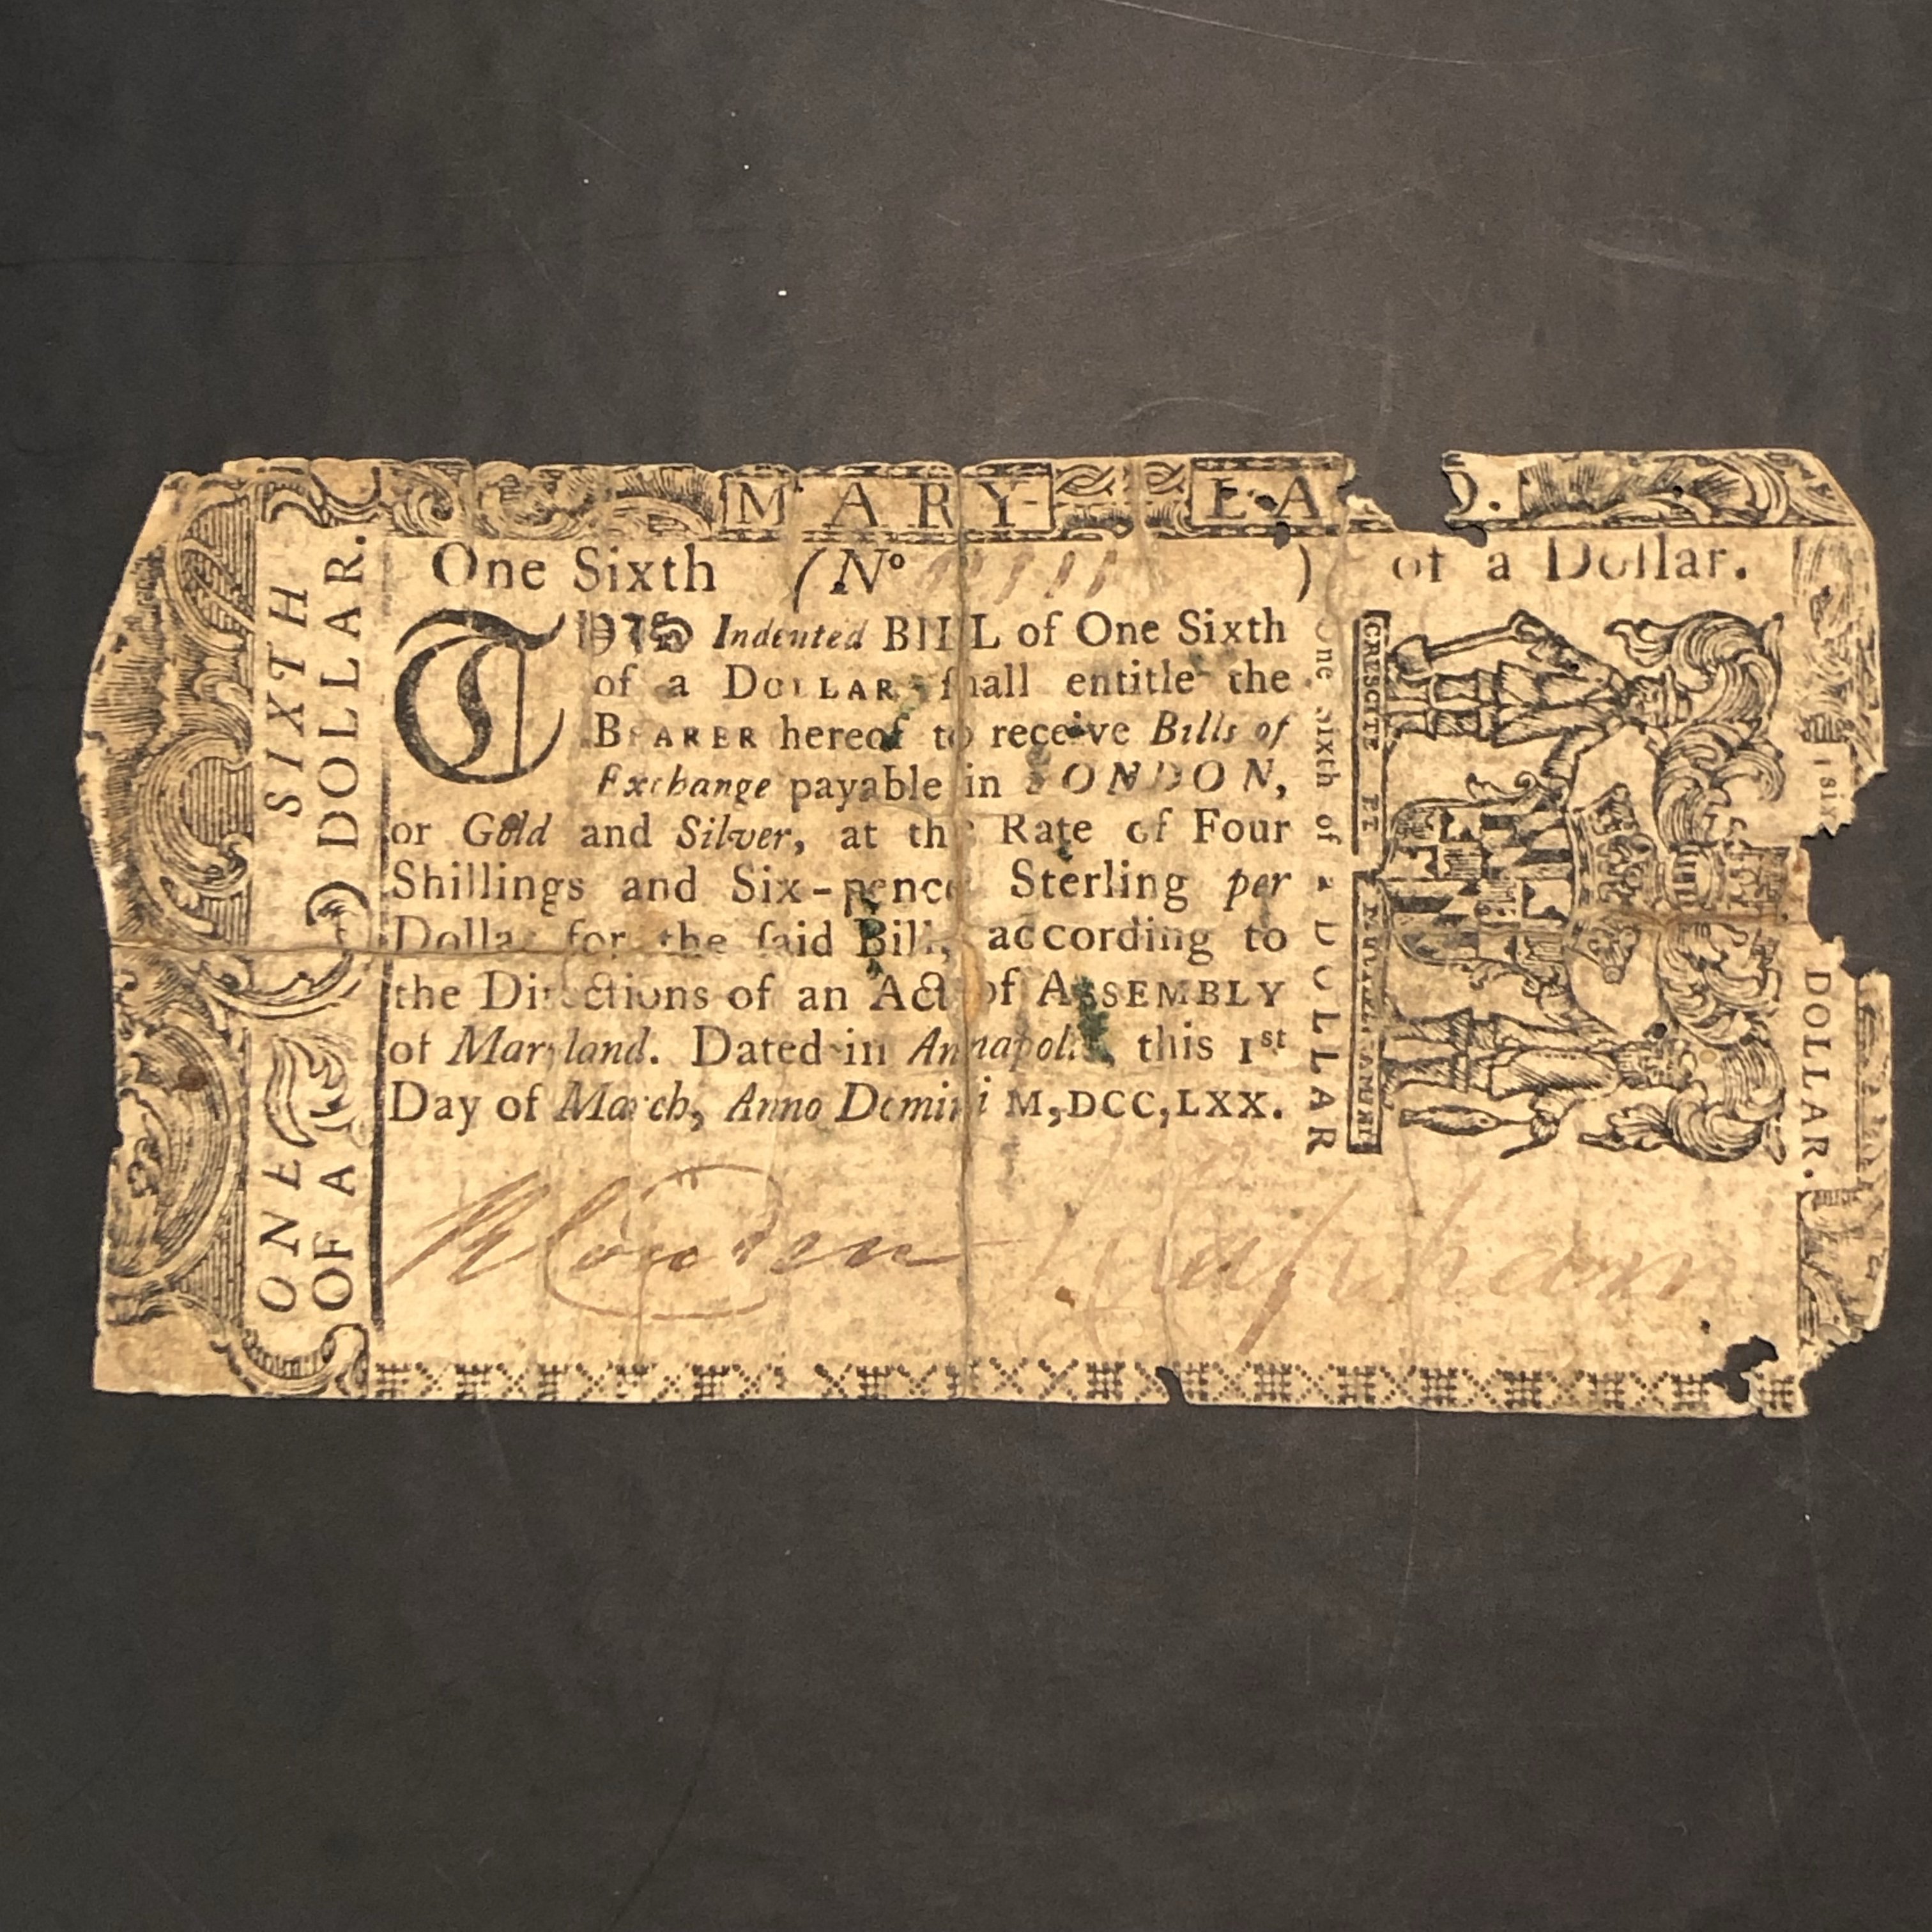 MARYLAND.
One Sixth (Nº ) of a Dollar.
THIS Indented BILL of One Sixth
of a DOLLAR, ſhall entitle the
BEARER hereof to receive Bills of
Exchange payable in LONDON,
or Gold and Silver, at the Rate of Four
Shillings and Six-pence Sterling per
Dollar for the ſaid Bill, according to
the Directions of an Act of ASSEMBLY
of Maryland. Dated in Annapolis, this 1st
Day of March, Anno Domini M,DCC,LXX.
ONE SIXTH
OF A DOLLAR.
One Sixth of a DOLLAR
CRESCITE ET MULTIPLICAMINI
DOLLAR.